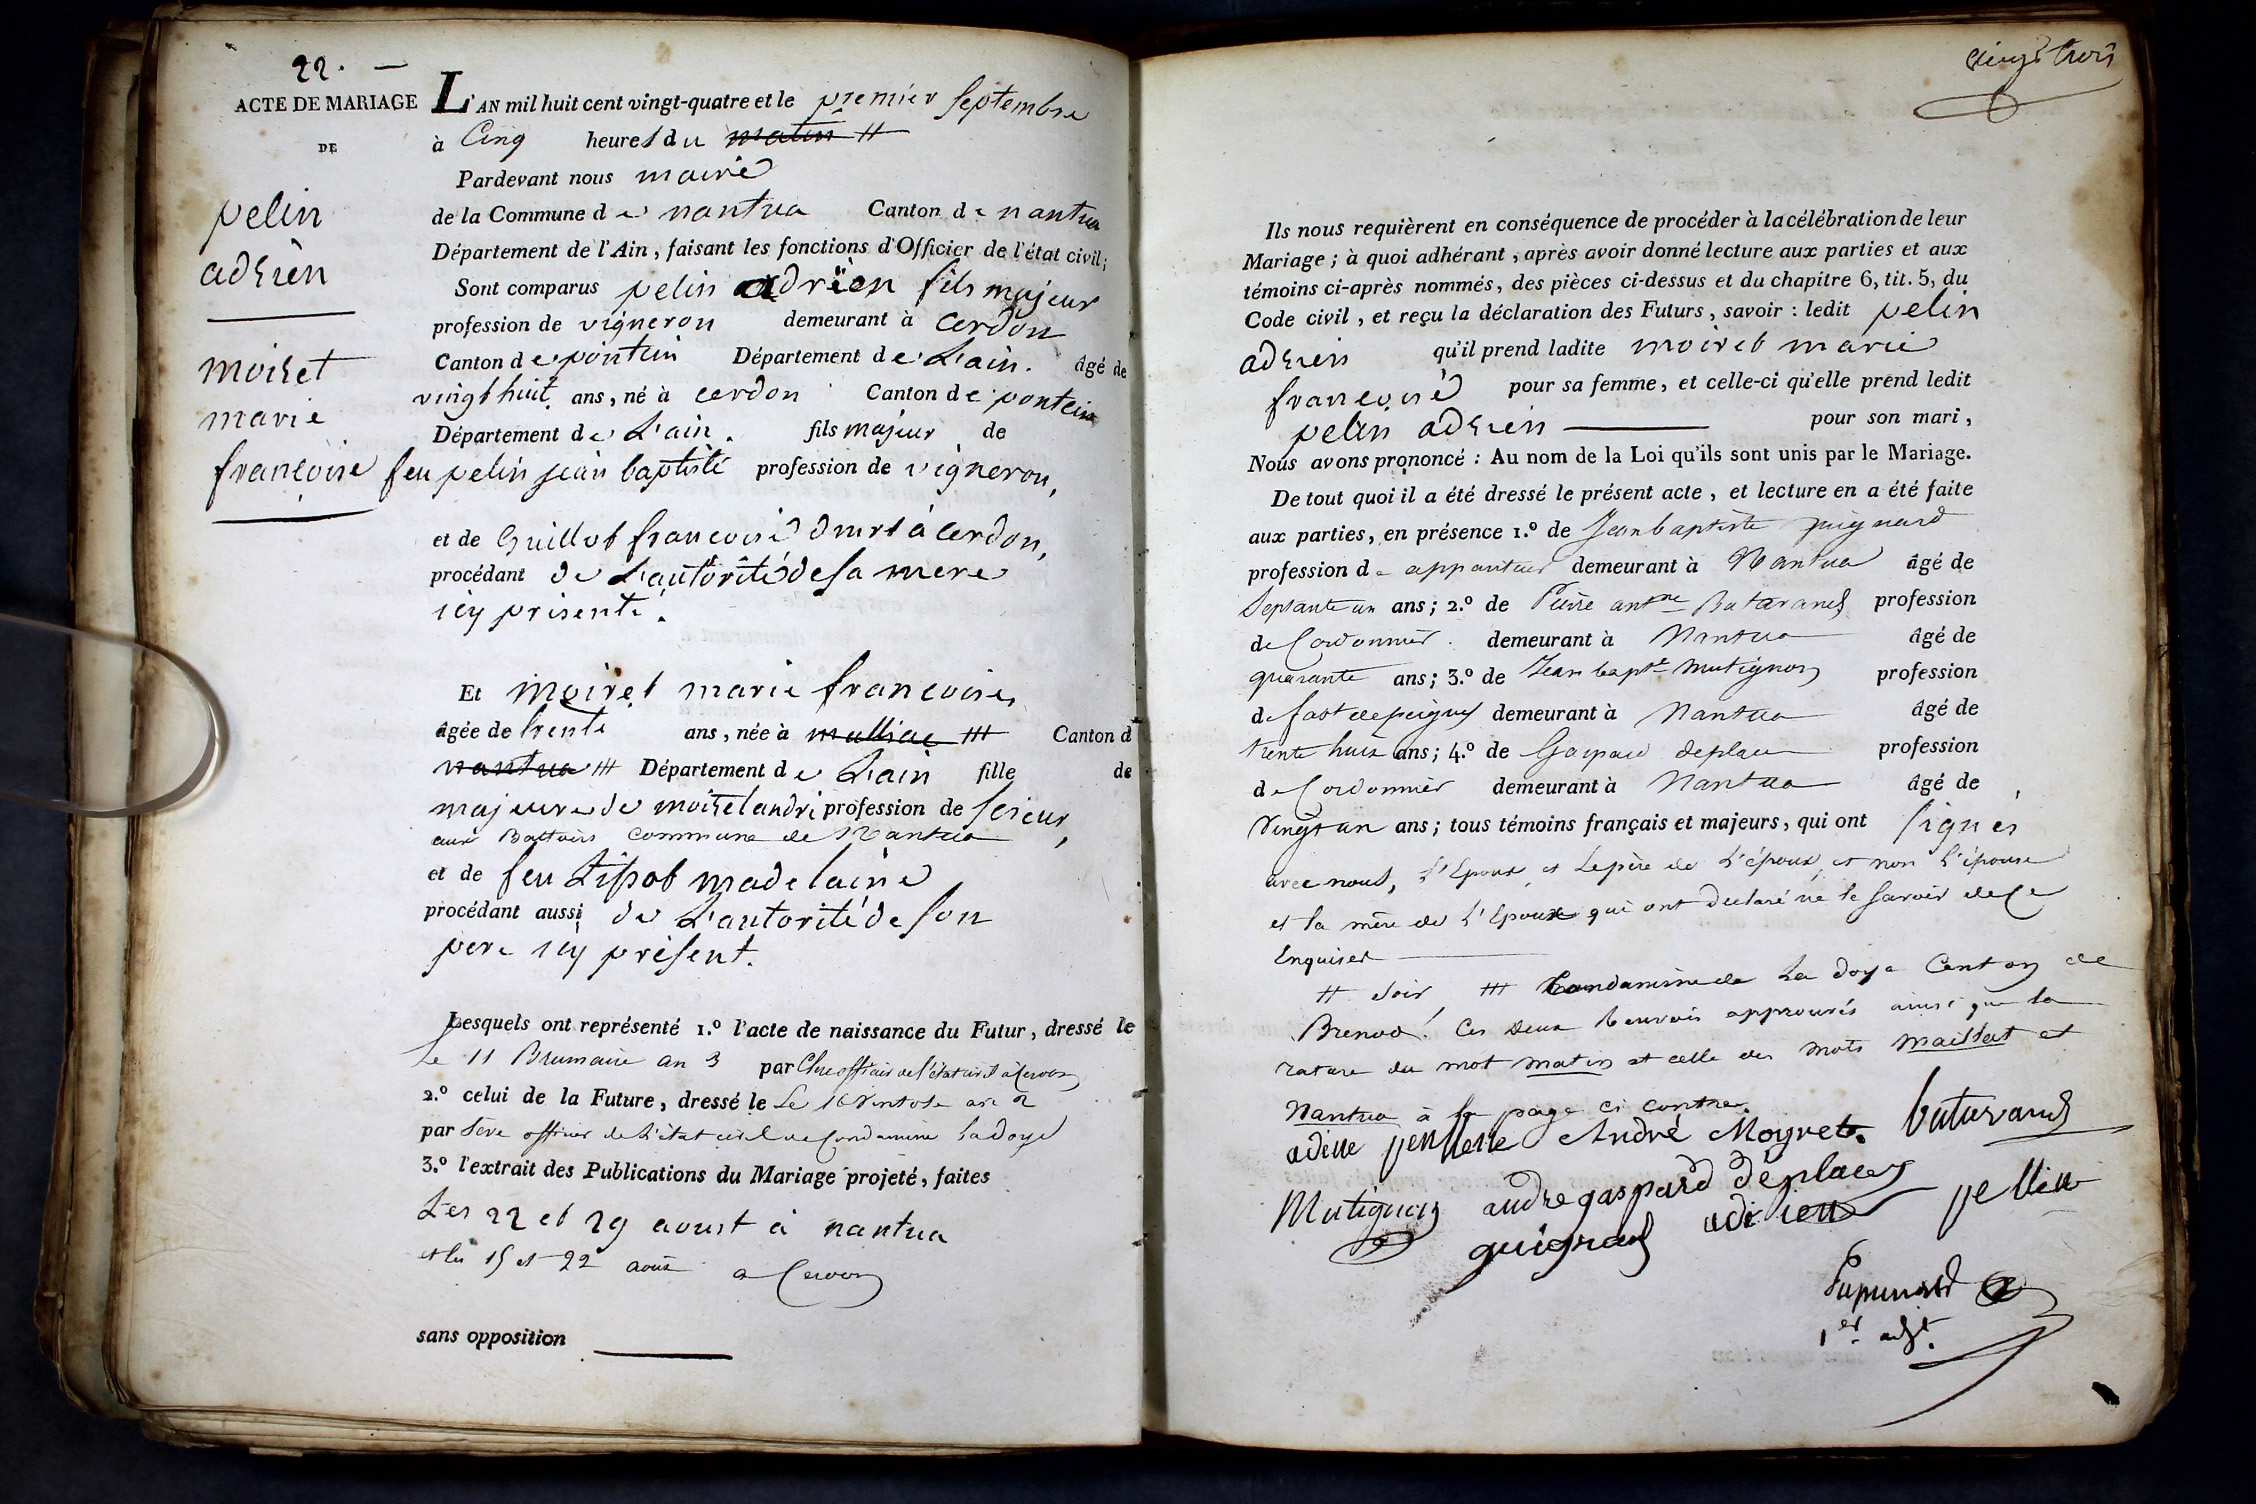 22. —
ACTE DE MARIAGE
DE
pelin
adrien
moiret
marie
françoise
L'AN mil huit cent vingt-quatre et le premier septembre
à Cinq heures du matin #
Pardevant nous maire
de la Commune de nantua Canton de nantua
Département de l'Ain, faisant les fonctions d'Officier de l'état civil;
Sont comparus pelin adrien fils majeur
profession de vigneron demeurant à cerdon
Canton de pontein Département de L'ain. âgé de
vingt huit ans, né à cerdon Canton de pontein
Département de L'ain. fils majeur de
feu pelin jean baptiste profession de vigneron,
et de Guillot françoise dmrt à cerdon,
procédant de L'autorité de sa mere
icy présente.
Et moiret marie françoise,
âgée de trente ans, née à malliac ⧻ Canton d
nantua ⧻ Département de L'ain fille de
majeure de moiret andri profession de scieur,
aux Battoirs Commune de Nantua,
et de feu Lissot madelaine
procédant aussi de L'autorité de son
pere icy présent.
Lesquels ont représenté 1.º l'acte de naissance du Futur, dressé le
Le 11 Brumaire an 3 par officier de l'état civil à Cerdon
2.º celui de la Future, dressé le Le 16 Ventose an 2
par Séve officier de L'état civil de Condamine Ladoye
3.º l'extrait des Publications du Mariage projeté, faites
Les 22 et 29 aoust à nantua
et les 15 et 22 août a Cerdon
sans opposition
vingt trois
Ils nous requièrent en conséquence de procéder à la célébration de leur
Mariage; à quoi adhérant, après avoir donné lecture aux parties et aux
témoins ci-après nommés, des pièces ci-dessus et du chapitre 6, tit. 5, du
Code civil, et reçu la déclaration des Futurs, savoir: ledit pelin
adrien qu'il prend ladite moiret marie
françoise pour sa femme, et celle-ci qu'elle prend ledit
pelin adrien pour son mari,
Nous avons prononcé: Au nom de la Loi qu'ils sont unis par le Mariage.
De tout quoi il a été dressé le présent acte, et lecture en a été faite
aux parties, en présence 1.º de Jean baptiste guignard
profession de demeurant à Nantua âgé de
septante un ans; 2.º de Pierre antne Butavand profession
de Cordonnier. demeurant à Nantua âgé de
quarante ans; 3.º de Jean bapte Mutignon profession
de fact de peignes demeurant à Nantua âgé de
trente huit ans; 4.º de Gaspard deplace profession
de Cordonnier demeurant à Nantua âgé de
Vingt un ans; tous témoins français et majeurs, qui ont signés
avec nous, L'Epoux et Le père de L'épouse, et non L'épouse
et la mère de L'Epoux qui ont declaré ne le savoir de ce
Enquises
# soir, ⧻ Condamine de La doye Canton de
Brenod. Ces deux renvois approuvés ainsi que la
rature du mot matin et celle des mots maillat et
Nantua à la page ci contre.
André Moyret. butavand
Mutignon andre gaspard déplace
guignard adrien pellin
1er adjt.